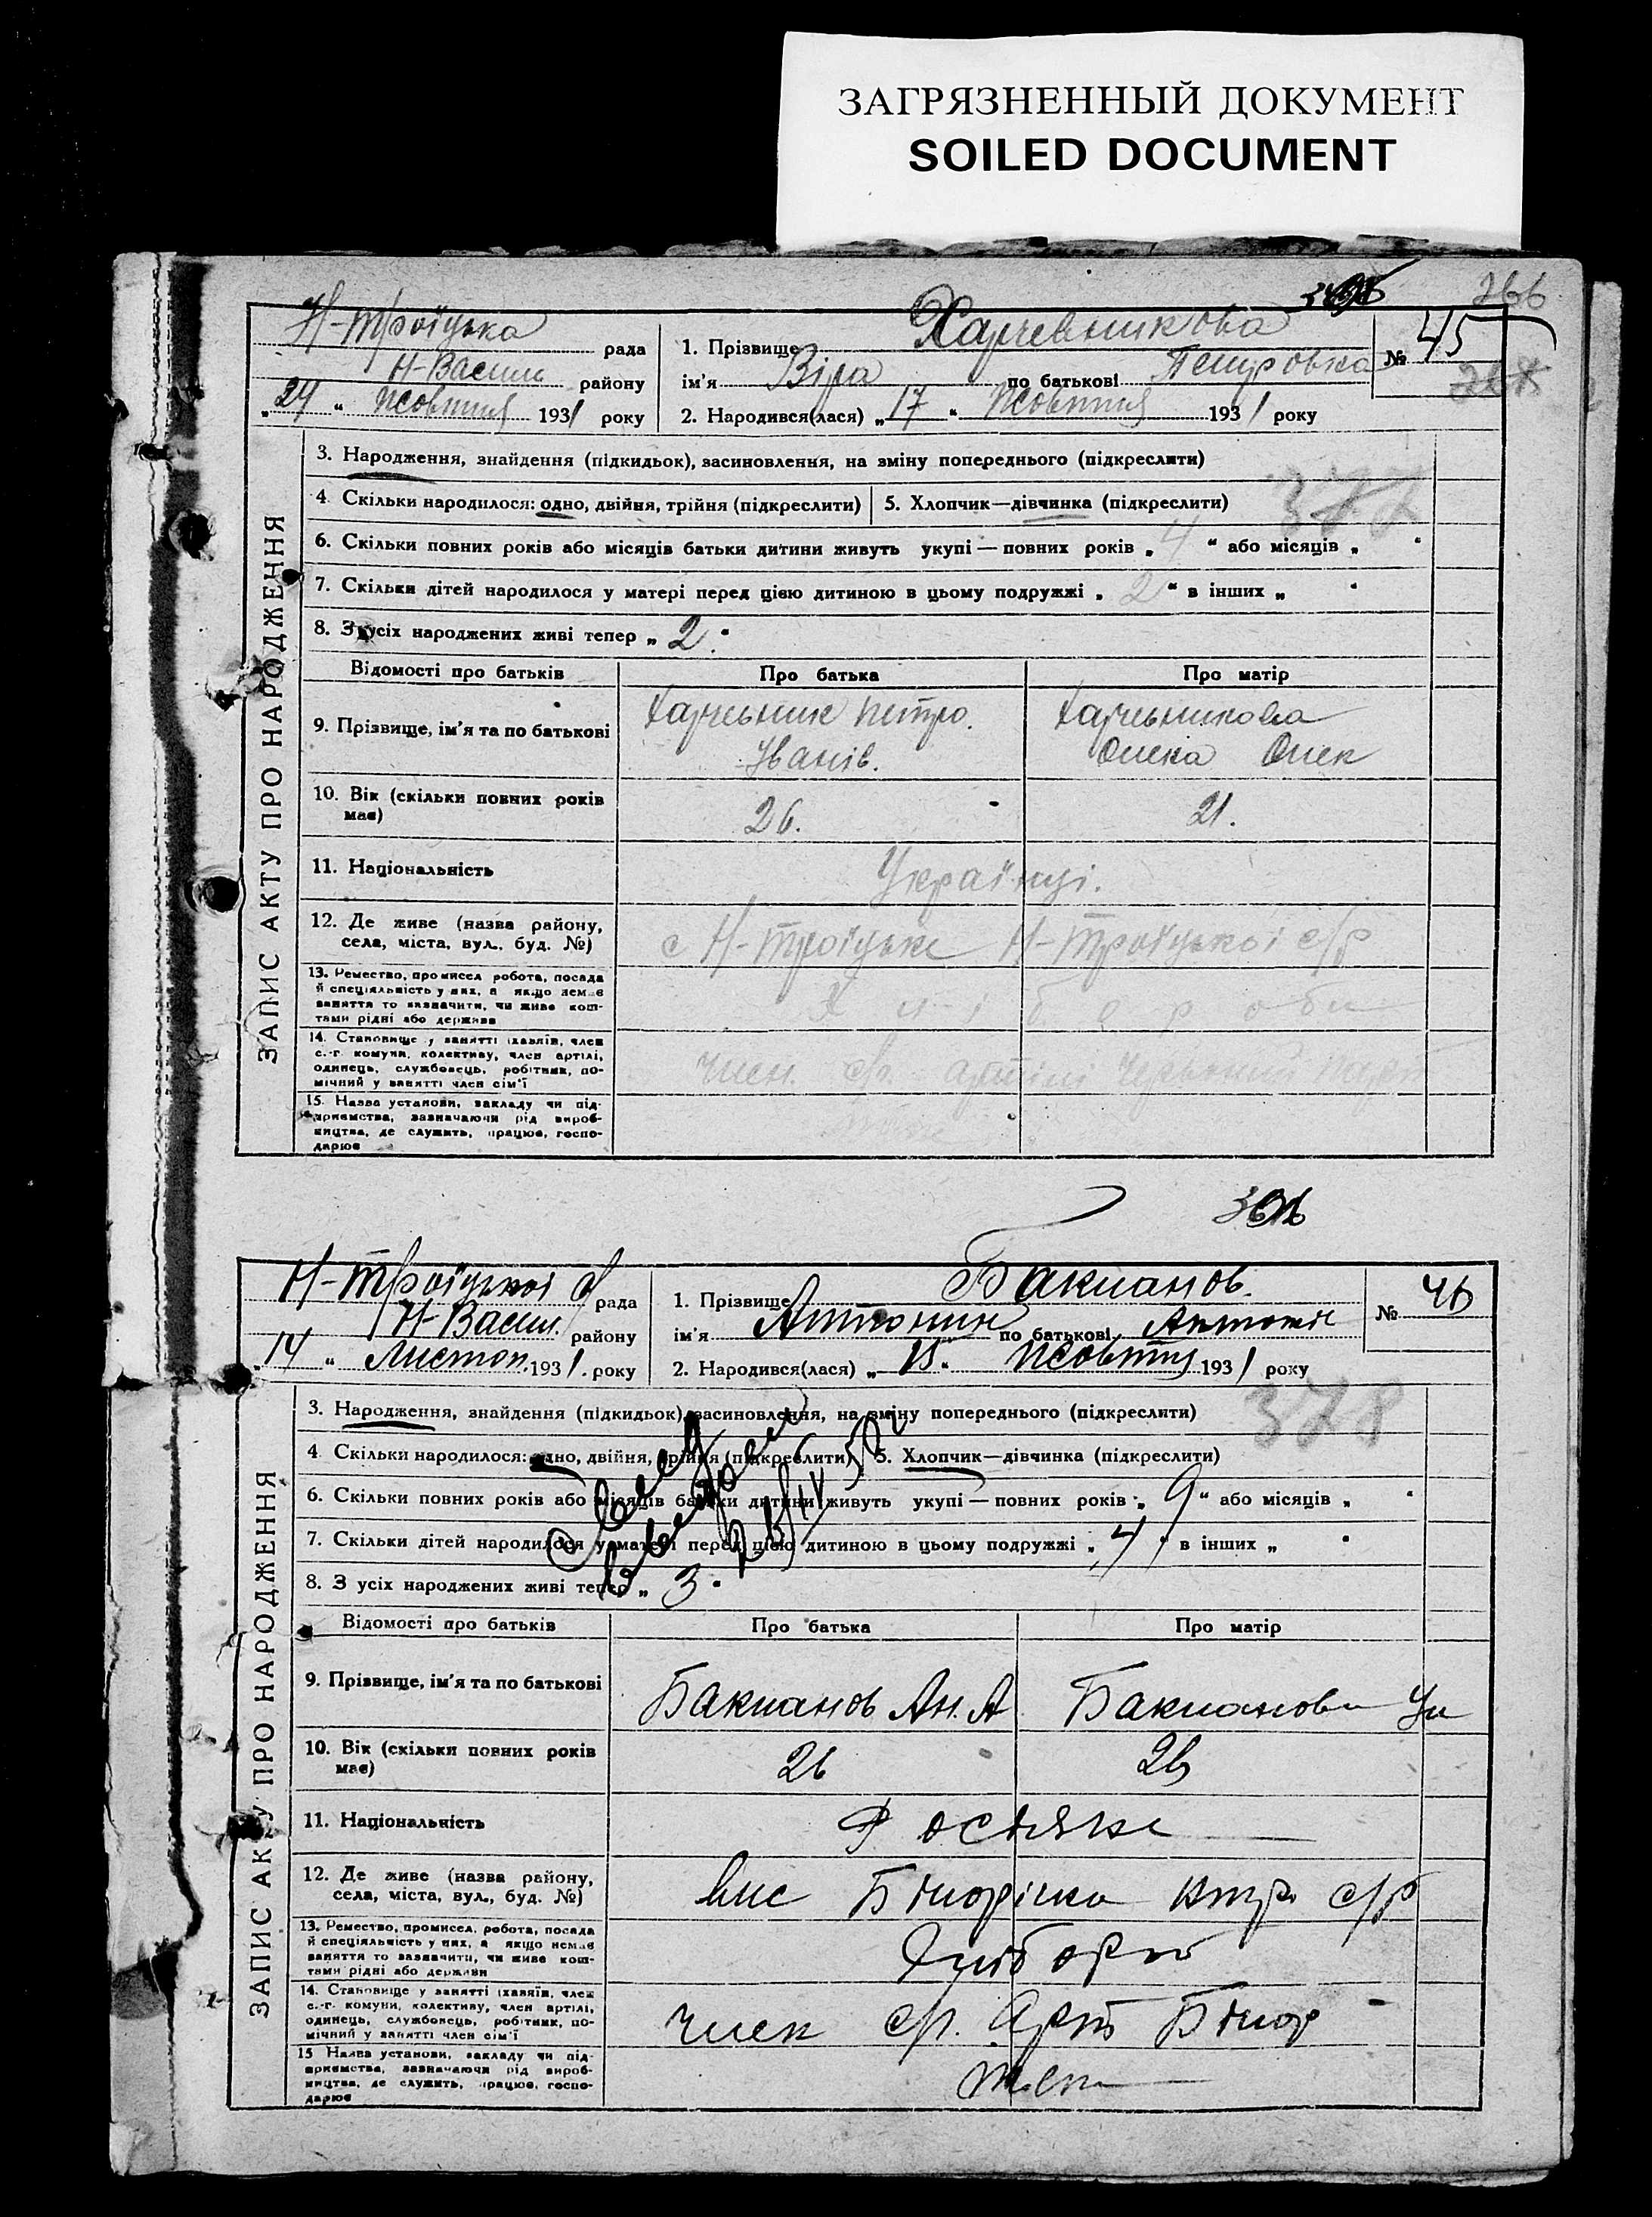 ЗАГРЯЗНЕННЫЙ ДОКУМЕНТ
SOILED DOCUMENT
366
Н-Троїцька рада
Н-Васил району
„24“ Жовтня 1931 року
1. Прізвище Харчевникова
ім'я Віра по батькові Петровна
2. Народився(лася) „17“ Жовтня 1931 року
№ 45
ЗАПИС АКТУ ПРО НАРОДЖЕННЯ
3. Народження, знайдення (підкидьок), засиновлення, на зміну попереднього (підкреслити)
377
4. Скільки народилося: одно, двійня, трійня (підкреслити)
5. Хлопчик—дівчинка (підкреслити)
6. Скільки повних років або місяців батьки дитини живуть укупі — повних років „4“ або місяців „ “
7. Скільки дітей народилося у матері перед цією дитиною в цьому подружжі „2“ в інших „ “
8. З усіх народжених живі тепер „2“
Відомості про батьків Про батька Про матір
9. Прізвище, ім'я та по батькові
Харчевник Петро. Харчевникова
Іванів. Олека Олек
10. Вік (скільки повних років має)
26. 21.
11. Національність
Українці.
12. Де живе (назва району, села, міста, вул., буд. №)
с Н-Троїцьке Н-Троїцької с/р
13. Ремество, промисел, робота, посада й спеціяльність у них, а якщо немає заняття то зазначити, чи живе коштами рідні або держави
Хлібороби
14. Становище у занятті (хазяїн, член с.-г. комуни, колективу, член артілі, одинець, службовець, робітник, помічний у занятті член сім'ї
член с/г. артілі
15. Назва установи, закладу чи підприємства, зазначаючи рід виробництва, де служить, працює, господарює
Н-Троїцької с рада
Н-Васил. району
„14“ Листоп. 1931. року
1. Прізвище Бакланов.
ім'я Антонин по батькові Антонів
2. Народився(лася) „15“ Жовтня 1931 року
№ 46
ЗАПИС АКТУ ПРО НАРОДЖЕННЯ
3. Народження, знайдення (підкидьок), засиновлення, на зміну попереднього (підкреслити)
378
4. Скільки народилося: одно, двійня, трійня (підкреслити)
5. Хлопчик—дівчинка (підкреслити)
6. Скільки повних років або місяців батьки дитини живуть укупі — повних років „9“ або місяців „ “
7. Скільки дітей народилося у матері перед цією дитиною в цьому подружжі „4“ в інших „ “
8. З усіх народжених живі тепер „3“
Відомості про батьків Про батька Про матір
9. Прізвище, ім'я та по батькові
Бакланов Ан. А Бакланова Ул
10. Вік (скільки повних років має)
26 26
11. Національність
Росіяне
12. Де живе (назва району, села, міста, вул., буд. №)
вис Білорічка нтр. с/р
13. Ремество, промисел, робота, посада й спеціяльність у них, а якщо немає заняття то зазначити, чи живе коштами рідні або держави
Хлібороб
14. Становище у занятті (хазяїн, член с.-г. комуни, колективу, член артілі, одинець, службовець, робітник, помічний у занятті член сім'ї
член с/г. Арт Білор
15 Назва установи, закладу чи підприємства, зазначаючи рід виробництва, де служить, працює, господарює